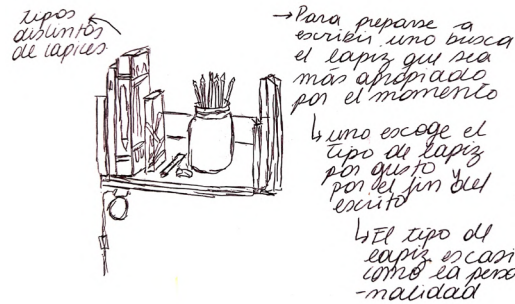 tipos
distintos
de lapices
→Para preparse a
escribir uno busca
el lapiz que sea
más apropiado
por el momento
↳uno escoge el
tipo de lapiz
por gusto y
por el fin del
escrito
↳El tipo del
lapiz es casi
como la perso
-nalidad